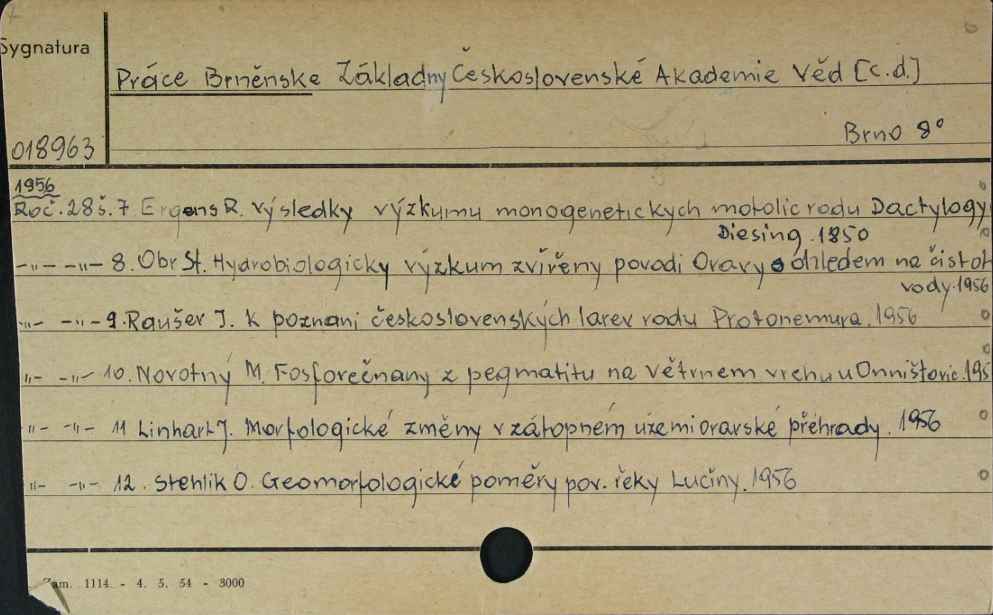 Sygnatura
Práce Brněnske Základny Československé Akademie Věd [c.d.]
018963
Brno 8°
1956
Roč. 28 š. 7 Ergens R. výsledky výzkumu monogenetickych motolic rodu Dactylogy
Diesing. 1850
-"- -"- 8. Obr St. Hydrobiologicky výzkum zvířeny povodi Oravy s óhledem na čistot
vody. 1956
-"- -"- 9. Raušer J. k poznani československých larev rodu Protonemura. 1956
-"- -"- 10. Novotný M. Fosforečnany z pegmatitu na větrnem vrchu u Onništovic. 195
-"- -"- 11 Linhart J. Morfologické změny v zátopném územi oravské přehrady. 1956
-"- -"- 12. Stehlik O. Geomorfologické poměry pov. řeky Lučiny. 1956
Zam. 1114. - 4. 5. 54 - 3000